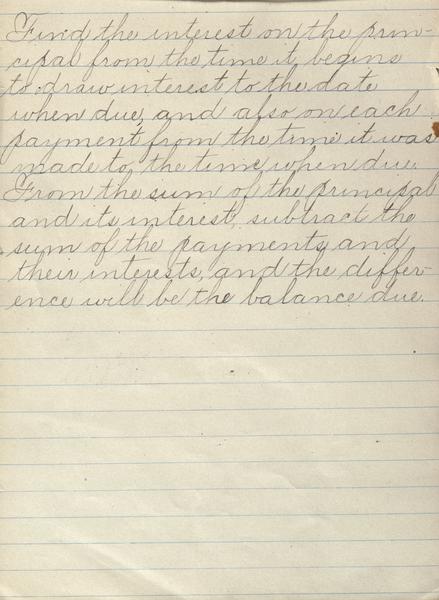 Find the interest on the prin-
cipal from the time it begins
to draw interest to the date
when due, and also on each
payment from the time it was
made to the time when due.
From the sum of the principal
and its interest, subtract the
sum of the payments and
their interests, and the differ-
ence will be the balance due.